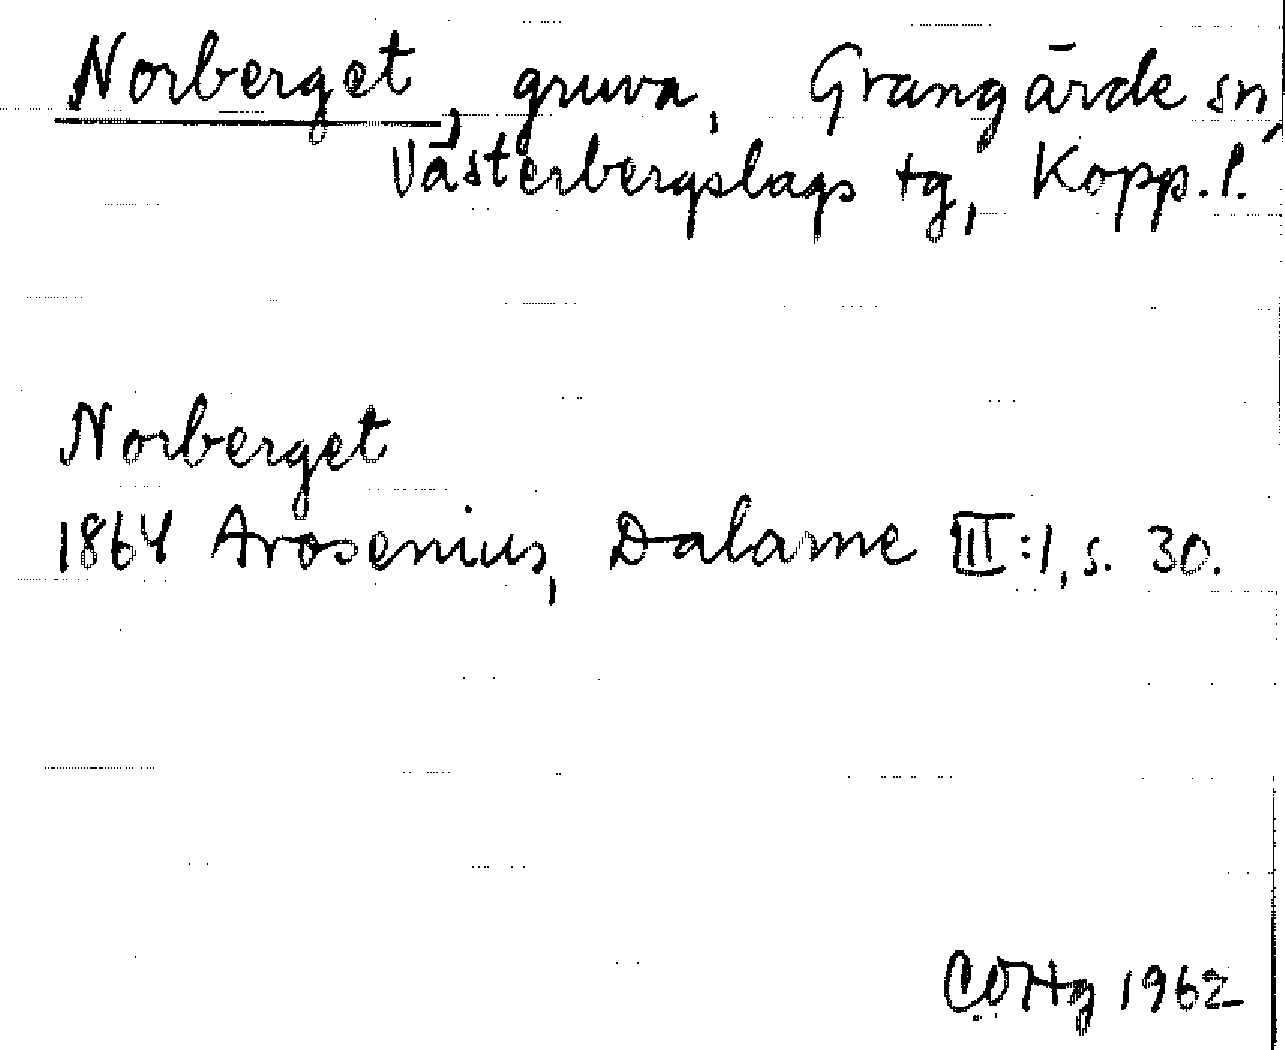 Norberget, gruva, Grangärde sn,
Västerbergslags tg, Kopp. l.
Norberget
1864 Arosenius, Dalarne III:1, s. 30.
1962